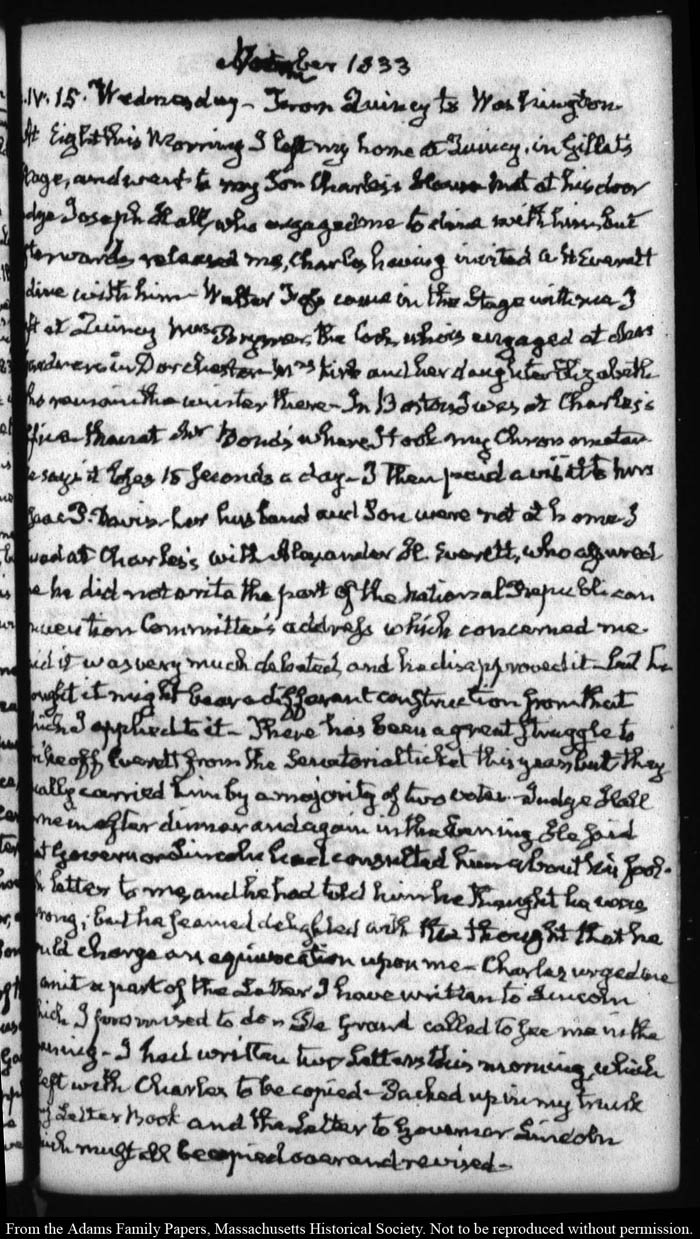 November 1833
IV. 15. Wednesday – From Quincy to Washington
At Eight this Morning I left my home at Quincy, in Gillet's
Stage, and went to my Son Charles's House met at his door
Judge Joseph Hall, who engaged me to dine with him, but
afterwards released me, Charles having invited A H Everett
dine with him – Walter came in the Stage with me I
left at Quincy the Cook, who is engaged at
in Dorchester – Mrs Kirk and her daughter Elizabeth
who remain the winter there – In Boston I was at Charles's
Office – then at Mr Bond's where I took my Chronometer
he says it loses 15 seconds a day – I then paid a visit to Mrs
Isaac P. Davis – her husband and Son were not at home I
dined at Charles's with Alexander H. Everett, who assured
me he did not write the part of the National Republican
Convention Committee's address which concerned me
said it was very much debated, and he disapproved it – but he
thought it might bear a different construction from that
which I applied to it – There has been a great struggle to
strike off Everett from the Senatorial ticket this year, but they
finally carried him by a majority of two votes – Judge Hall
came in after dinner and again in the Evening He said
that Governor Lincoln had consulted him about his fool-
ish letter to me, and he had told him he thought he was
wrong; but he seemed delighted with the thought that he
could charge an equivocation upon me – Charles urged me
omit a part of the Letter I have written to Lincoln
which I promised to do – De Grand called to see me in the
evening – I had written two Letters this morning, which
left with Charles to be copied – Packed up in my trunk
my Letter Book and the Letter to Governor Lincoln
which must all be copied over and revised –
From the Adams Family Papers, Massachusetts Historical Society. Not to be reproduced without permission.